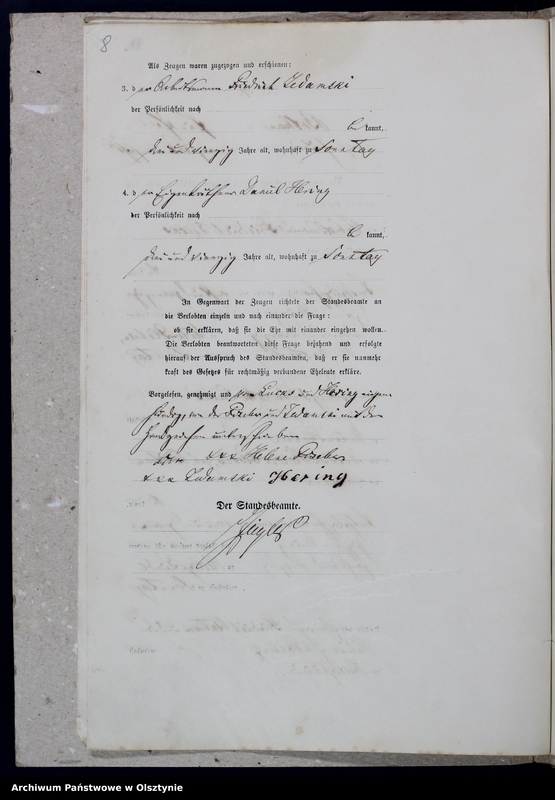 8
Als Zeugen waren zugezogen und erschienen:
3. der Arbeitsmann Friedrich Zedamski
der Persönlichkeit nach
be kannt,
drei und vierzig Jahre alt, wohnhaft zu Sonntag
4. der Eigenkäthner Daniel Hering
der Persönlichkeit nach
be kannt,
drei und vierzig Jahre alt, wohnhaft zu Sonntag
In Gegenwart der Zeugen richtete der Standesbeamte an
die Verlobten einzeln und nach einander die Frage:
ob sie erklären, daß sie die Ehe mit einander eingehen wollen.
Die Verlobten beantworteten diese Frage bejahend und erfolgte
hierauf der Ausspruch des Standesbeamten, daß er sie nunmehr
kraft des Gesetzes für rechtmäßig verbundene Eheleute erkläre.
Vorgelesen, genehmigt und von Lucas und Hering eigen
händig, von der Fischer und Zedamski mit dem
Handzeichen unterschrieben
xxx Helene Fischer
xxx Zedamski Hering
Der Standesbeamte.
Archiwum Państwowe w Olsztynie